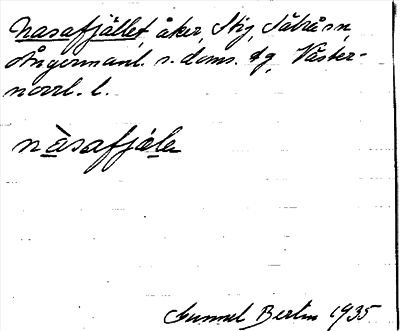 Nasafjället, åker, Stig, Säbrå sn,
Ångermanl. s. doms. dg, Väster-
norrl. l.
nàsafjálen
Gunnel Bertin 1935